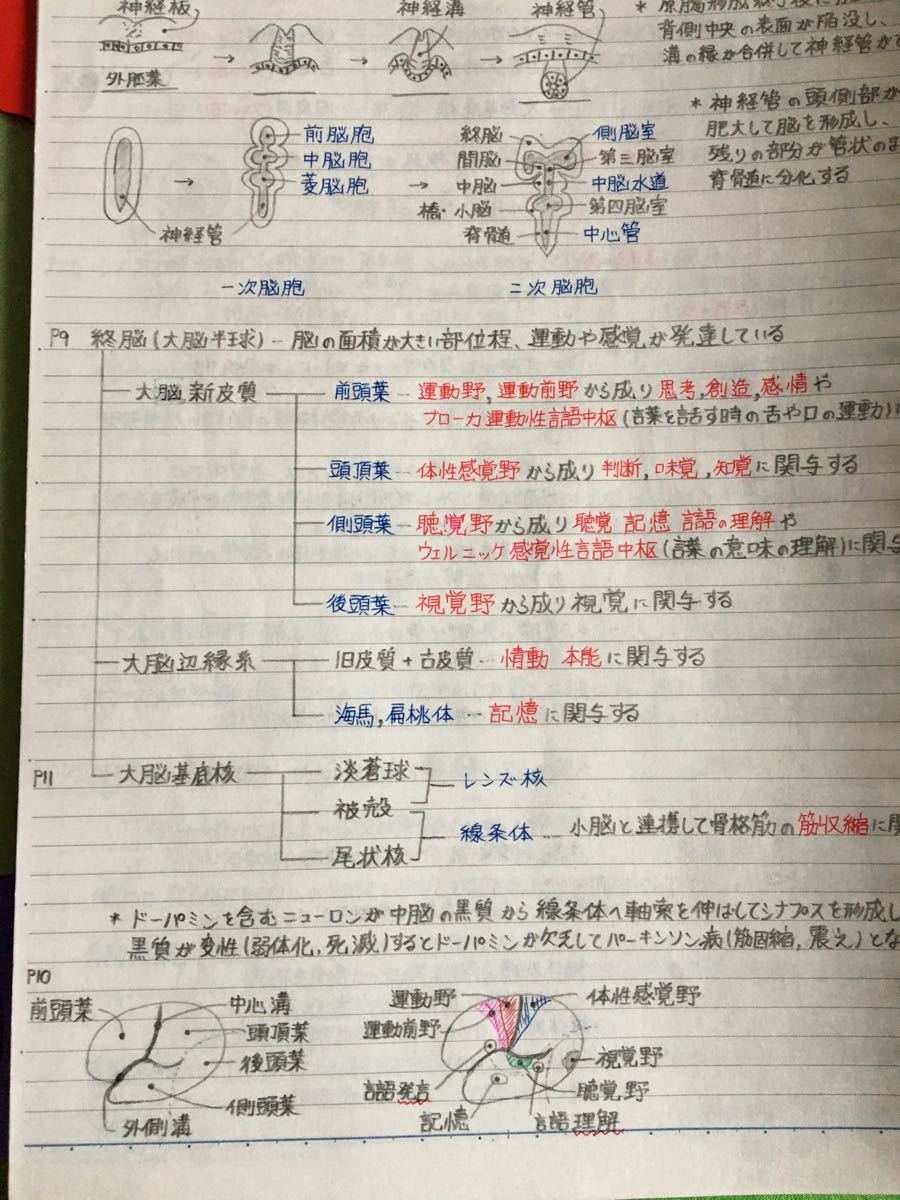 神経板
神経溝
神経管
* 原腸形成終了後に
背側中央の表面が陥没し、
溝の縁が合併して神経管がで
外胚葉
* 神経管の頭側部が
肥大して脳を形成し、
残りの部分が管状のま
脊骨道に分化する
前脳胞
中脳胞
菱脳胞
神経管
終脳
間脳
中脳
橋・小脳
脊骨道
側脳室
第三脳室
中脳水道
第四脳室
中心管
一次脳胞
二次脳胞
P9 終脳(大脳半球)--脳の面積が大きい部位程、運動や感覚が発達している
大脳新皮質
前頭葉--運動野,運動前野から成り思考,創造,感情や
ブローカ運動性言語中枢(言葉を話す時の舌や口の運動)に
頭頂葉--体性感覚野から成り判断,味覚,知覚に関与する
側頭葉--聴覚野から成り聴覚 記憶 言語の理解や
ウェルニッケ感覚性言語中枢(言葉の意味の理解)に関与
後頭葉--視覚野から成り視覚に関与する
大脳辺縁系
旧皮質+古皮質--情動 本能に関与する
海馬,扁桃体--記憶に関与する
P11 大脳基底核
淡蒼球
被殻
尾状核
レンズ核
線条体--小脳と連携して骨格筋の筋収縮に関
* ドーパミンを含むニューロンが中脳の黒質から線条体へ軸索を伸ばしてシナプスを形成し
黒質が変性(弱体化,死滅)するとドーパミンが欠乏してパーキンソン病(筋固縮,震え)とな
P10
前頭葉
中心溝
頭頂葉
後頭葉
側頭葉
外側溝
運動野
運動前野
言語発言
記憶
体性感覚野
視覚野
聴覚野
言語理解